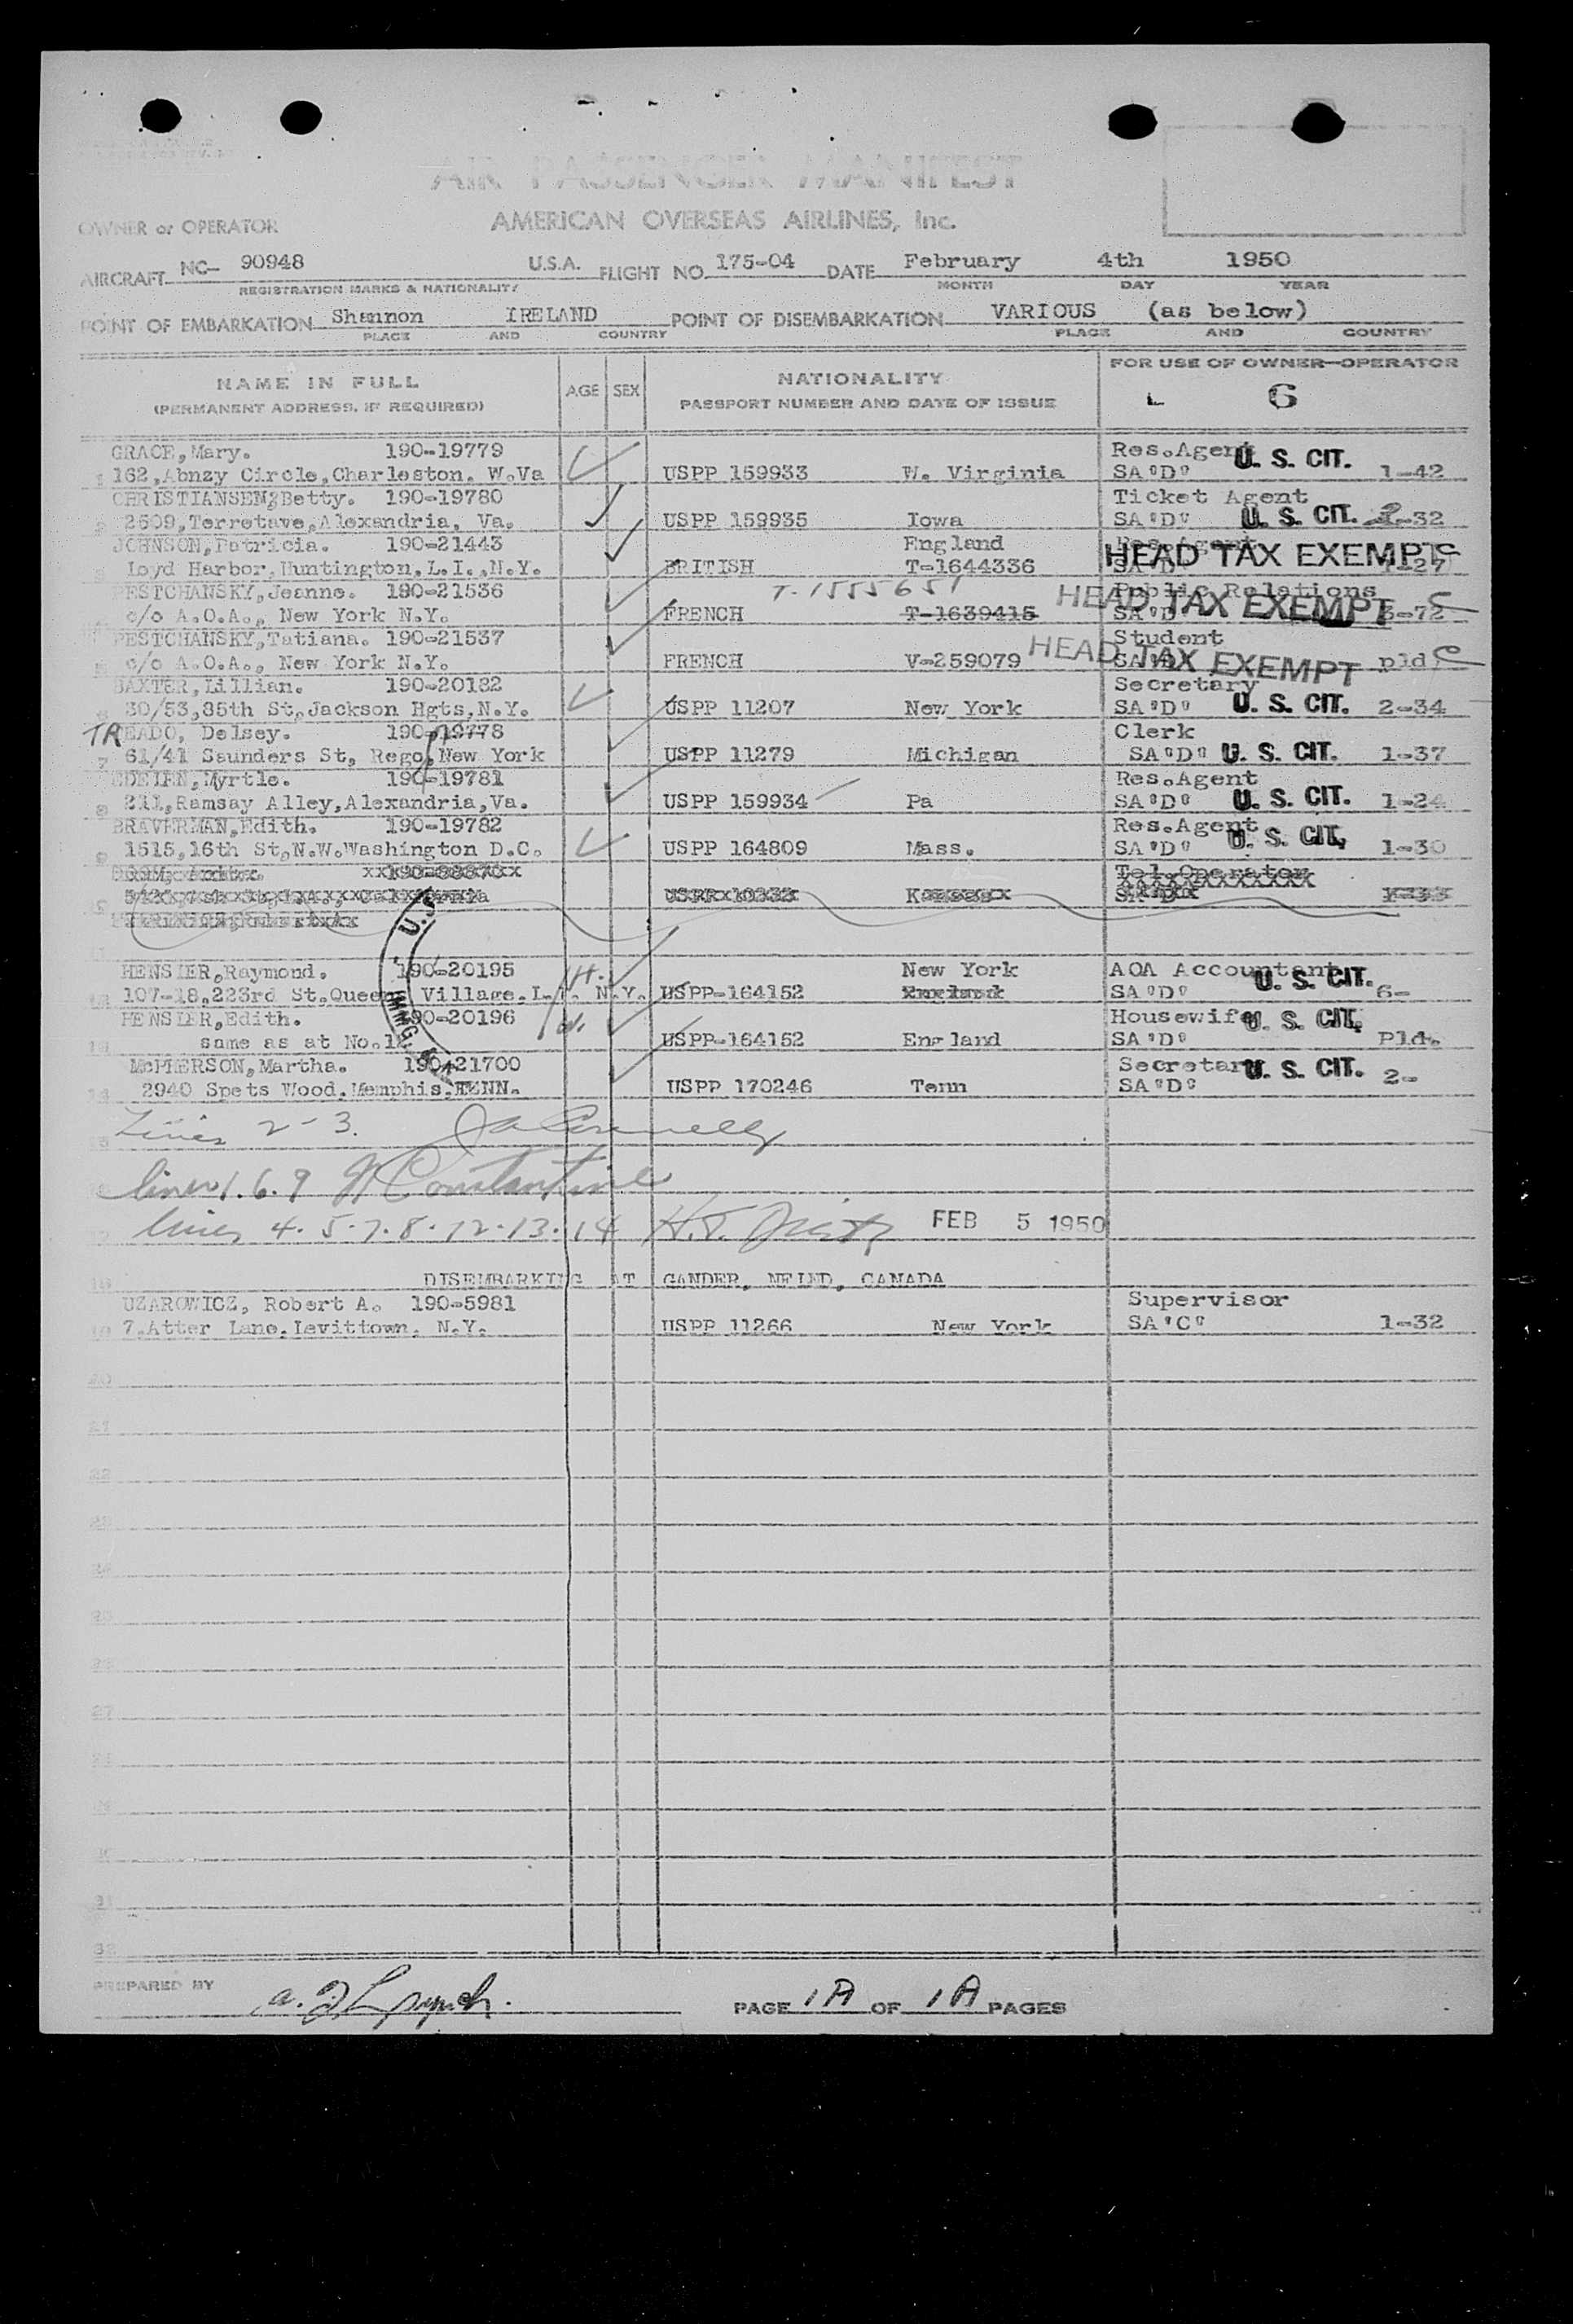 AIR PASSENGER MANIFEST
OWNER or OPERATOR AMERICAN OVERSEAS AIRLINES, Inc.
AIRCRAFT NC- 90948 U.S.A. FLIGHT NO. 175-04 DATE February 4th 1950
REGISTRATION MARKS & NATIONALITY MONTH DAY YEAR
POINT OF EMBARKATION Shannon IRELAND POINT OF DISEMBARKATION VARIOUS (as below)
PLACE AND COUNTRY PLACE AND COUNTRY
NAME IN FULL AGE SEX NATIONALITY FOR USE OF OWNER-OPERATOR
(PERMANENT ADDRESS, IF REQUIRED) PASSPORT NUMBER AND DATE OF ISSUE L 6
GRACE,Mary. 190-19779 Res.Agent U. S. CIT.
1 162,Abnzy Circle,Charleston. W.Va USPP 159933 W. Virginia SA"D" 1-42
CHRISTIANSEN,Betty. 190-19780 Ticket Agent
2 2609,Terretave,Alexandria, Va. USPP 159935 Iowa SA"D" U. S. CIT. 2-32
JOHNSON,Patricia. 190-21443 England Res.Agent
Loyd Harbor,Huntington,L.I.,N.Y. BRITISH T-1644336 HEAD TAX EXEMPT SA"D" 1-27
PESTCHANSKY,Jeanne. 190-21536 T-1555651 Public Relations
c/o A.O.A., New York N.Y. FRENCH T-1639415 HEAD TAX EXEMPT SA"D" 3-72
PESTCHANSKY,Tatiana. 190-21537 Student
c/o A.O.A., New York N.Y. FRENCH V-259079 HEAD TAX EXEMPT SA"D" pld
BAXTER,Lillian. 190-20182 Secretary
30/53,85th St,Jackson Hgts,N.Y. USPP 11207 New York SA"D" U. S. CIT. 2-34
TREADO, Delsey. 190-19778 Clerk
7 61/41 Saunders St, Rego, New York USPP 11279 Michigan SA"D" U. S. CIT. 1-37
Myrtle. 190-19781 Res.Agent
8 211,Ramsay Alley,Alexandria,Va. USPP 159934 Pa SA"D" U. S. CIT. 1-24
BRAVERMAN,Edith. 190-19782 Res.Agent
9 1515,16th St,N.W.Washington D.C. USPP 164809 Mass. SA"D" U. S. CIT. 1-30
Tel.Operator
HENSLER,Raymond. 190-20195 H. New York AOA Accountant
12 107-18,223rd St.Queens Village.L.I. N.Y. USPP-164152 SA"D" U. S. CIT. 6-
HENSLER,Edith. 190-20196 W. Housewife U. S. CIT.
13 same as at No.12 USPP-164152 England SA"D" Pld.
McPHERSON,Martha. 190-21700 Secretary U. S. CIT.
14 2940 Spets Wood.Memphis.TENN. USPP 170246 Tenn SA"D" 2-
U.S. IMMIG.
Lines 2-3.
lines 1.6.9 Constantine
lines 4.5.7.8.12.13.14 H.T. FEB 5 1950
18 DISEMBARKING AT GANDER, NFLND, CANADA
UZAROWICZ, Robert A. 190-5981 Supervisor
19 7.Atter Lane.Levittown. N.Y. USPP 11266 New York SA"C" 1-32
20
21
22
23
24
25
26
27
28
29
30
31
32
PREPARED BY PAGE 1A OF 1A PAGES